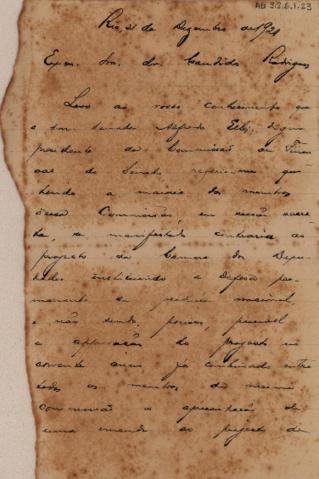 AB 3.2.6.1-23
Rio, 21 de Dezembro de 1921
Exmo. Snr. dor. Candido Rodrigues
Levo ao vosso conhecimento que
o snr. senador Alfredo Ellis, digno
presidente da Commissão de Finan
ças do Senado, referio-me que
tendo a maioria dos membros
dessa Commissão, em
se manifestado contraria ao
projecto da Camara dos Depu
tados instituindo a Defesa per
manente da nacional
e não sendo possivel
a approvação do projecto no
corrente anno já combinado entre
todos os membros da mesma
commissão a apresentação de
uma emenda ao projecto de